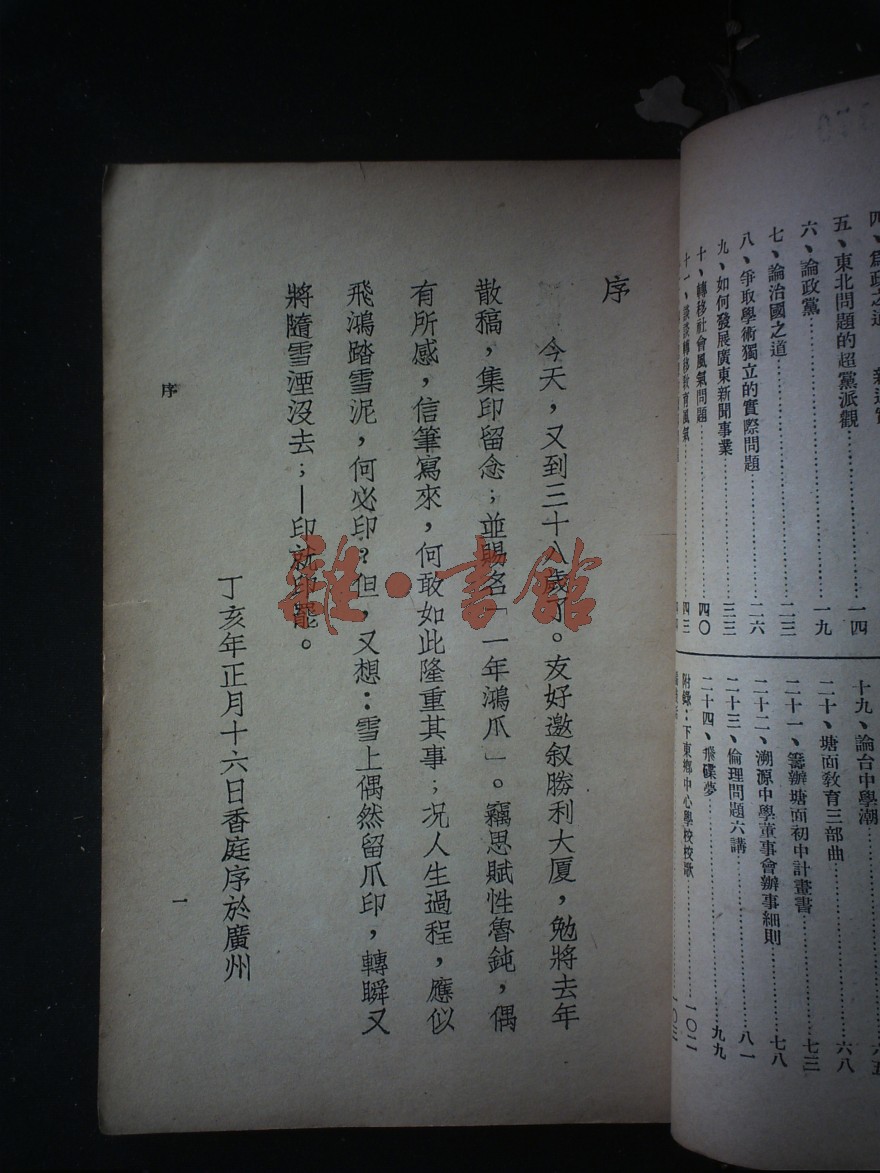 序
今天，又到三十八歲了。友好邀叙勝利大厦，勉將去年
散稿，集印留念；並賜名「一年鴻爪」。竊思賦性魯鈍，偶
有所感，信筆寫來，何敢如此隆重其事；况人生過程，應似
飛鴻踏雪泥，何必印？但，又想：雪上偶然留爪印，轉瞬又
將隨雪湮沒去；—印就印罷。
丁亥年正月十六日香庭序於廣州
序
一
雜·書館
四、爲政之道
一四
五、東北問題的超黨派觀……一九
六、論政黨……二三
七、論治國之道……二六
八、爭取學術獨立的實際問題……三三
九、如何發展廣東新聞事業……四〇
十、轉移社會風氣問題……四三
十一、談談轉移教育風氣
十九、論台中學潮……六五
二十、塘面敎育三部曲……六八
二十一、籌辦塘面初中計畫書……七三
二十二、溯源中學董事會辦事細則……七八
二十三、倫理問題六講……八一
二十四、飛碟夢……九九
附錄：下東鄉中心學校校歌……一〇二
一〇三